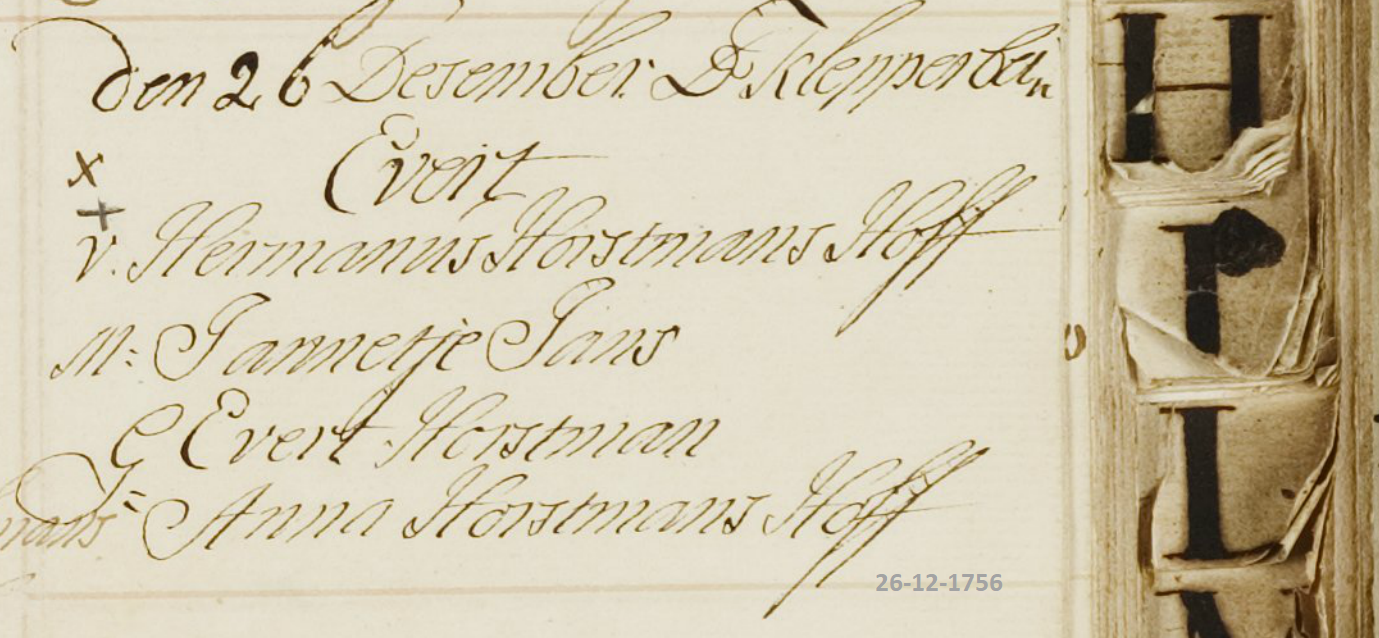 Den 26 Desember. Ds Klepperbein
x
Evert
+
v. Hermanus Horstmans Hoff
M: Jannetje Jans
G Evert Horstman
Anna Horstmans Hoff
26-12-1756
H
I
L